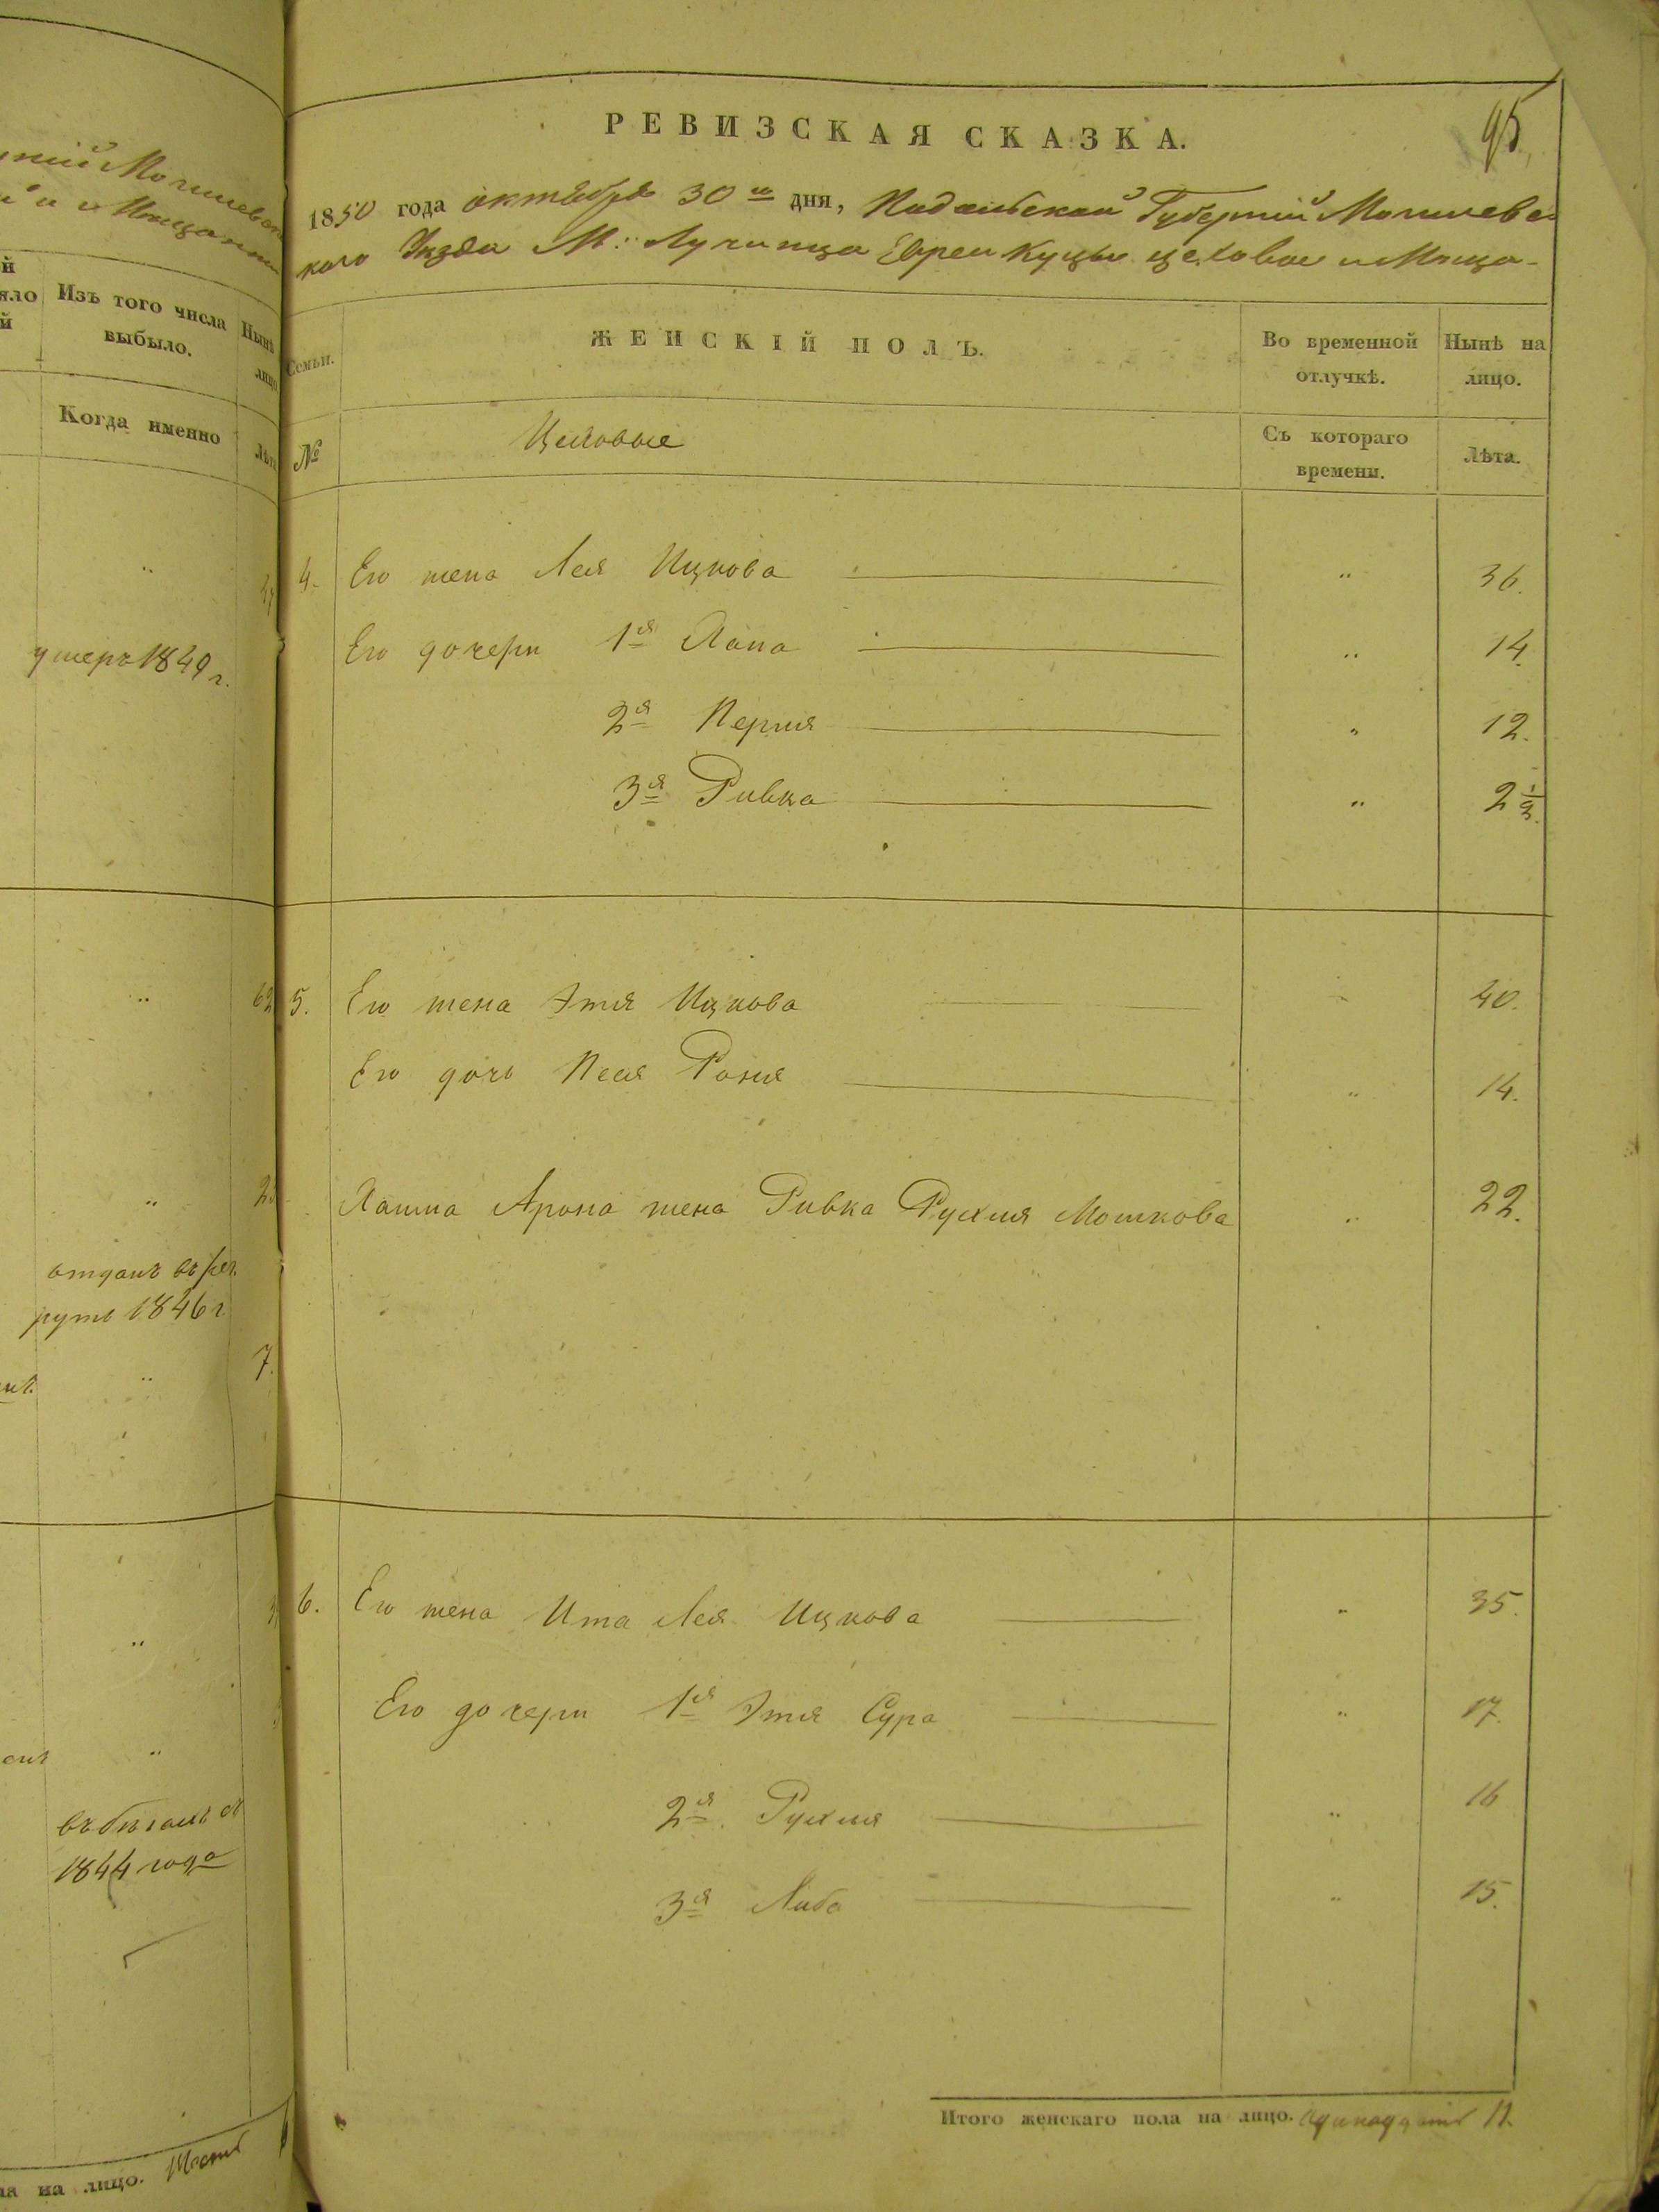 мній Могилевск
й и Мещанин
й
яло
й
Изъ того числа
выбыло.
Нынѣ
лицо
Когда именно
Лѣта
умеръ 1849 г.
63
отданъ въ рек
руты 1846 г
7.
въ бѣгахъ съ
1844 года
на лицо. Шесть
РЕВИЗСКАЯ СКАЗКА.
95
1850 года октября 30го дня, Подольской Губерніи Могилевс
кого Уѣзда М: Лучинца Евреи Купцы цеховые и Меща-
Семьи.
ЖЕНСКІЙ ПОЛЪ.
Во временной
отлучкѣ.
Нынѣ на
лицо.
№
Цеховые
Съ котораго
времени.
Лѣта.
4. Его жена Лея Ицкова " 36.
Его дочери 1я Хана " 14.
2я Перля " 12.
3я Ривка " 2 1/3.
5. Его жена Этя Ицкова " 40.
Его дочь Песя Рохля " 14.
Хаима Арона жена Ривка Рухля Мошкова " 22.
6. Его жена Ита Лея Ицкова " 35.
Его дочери 1я Этя Сура " 17.
2я Рухля " 16
3я Либа " 15.
Итого женскаго пола на лицо. Одинадцять 11.